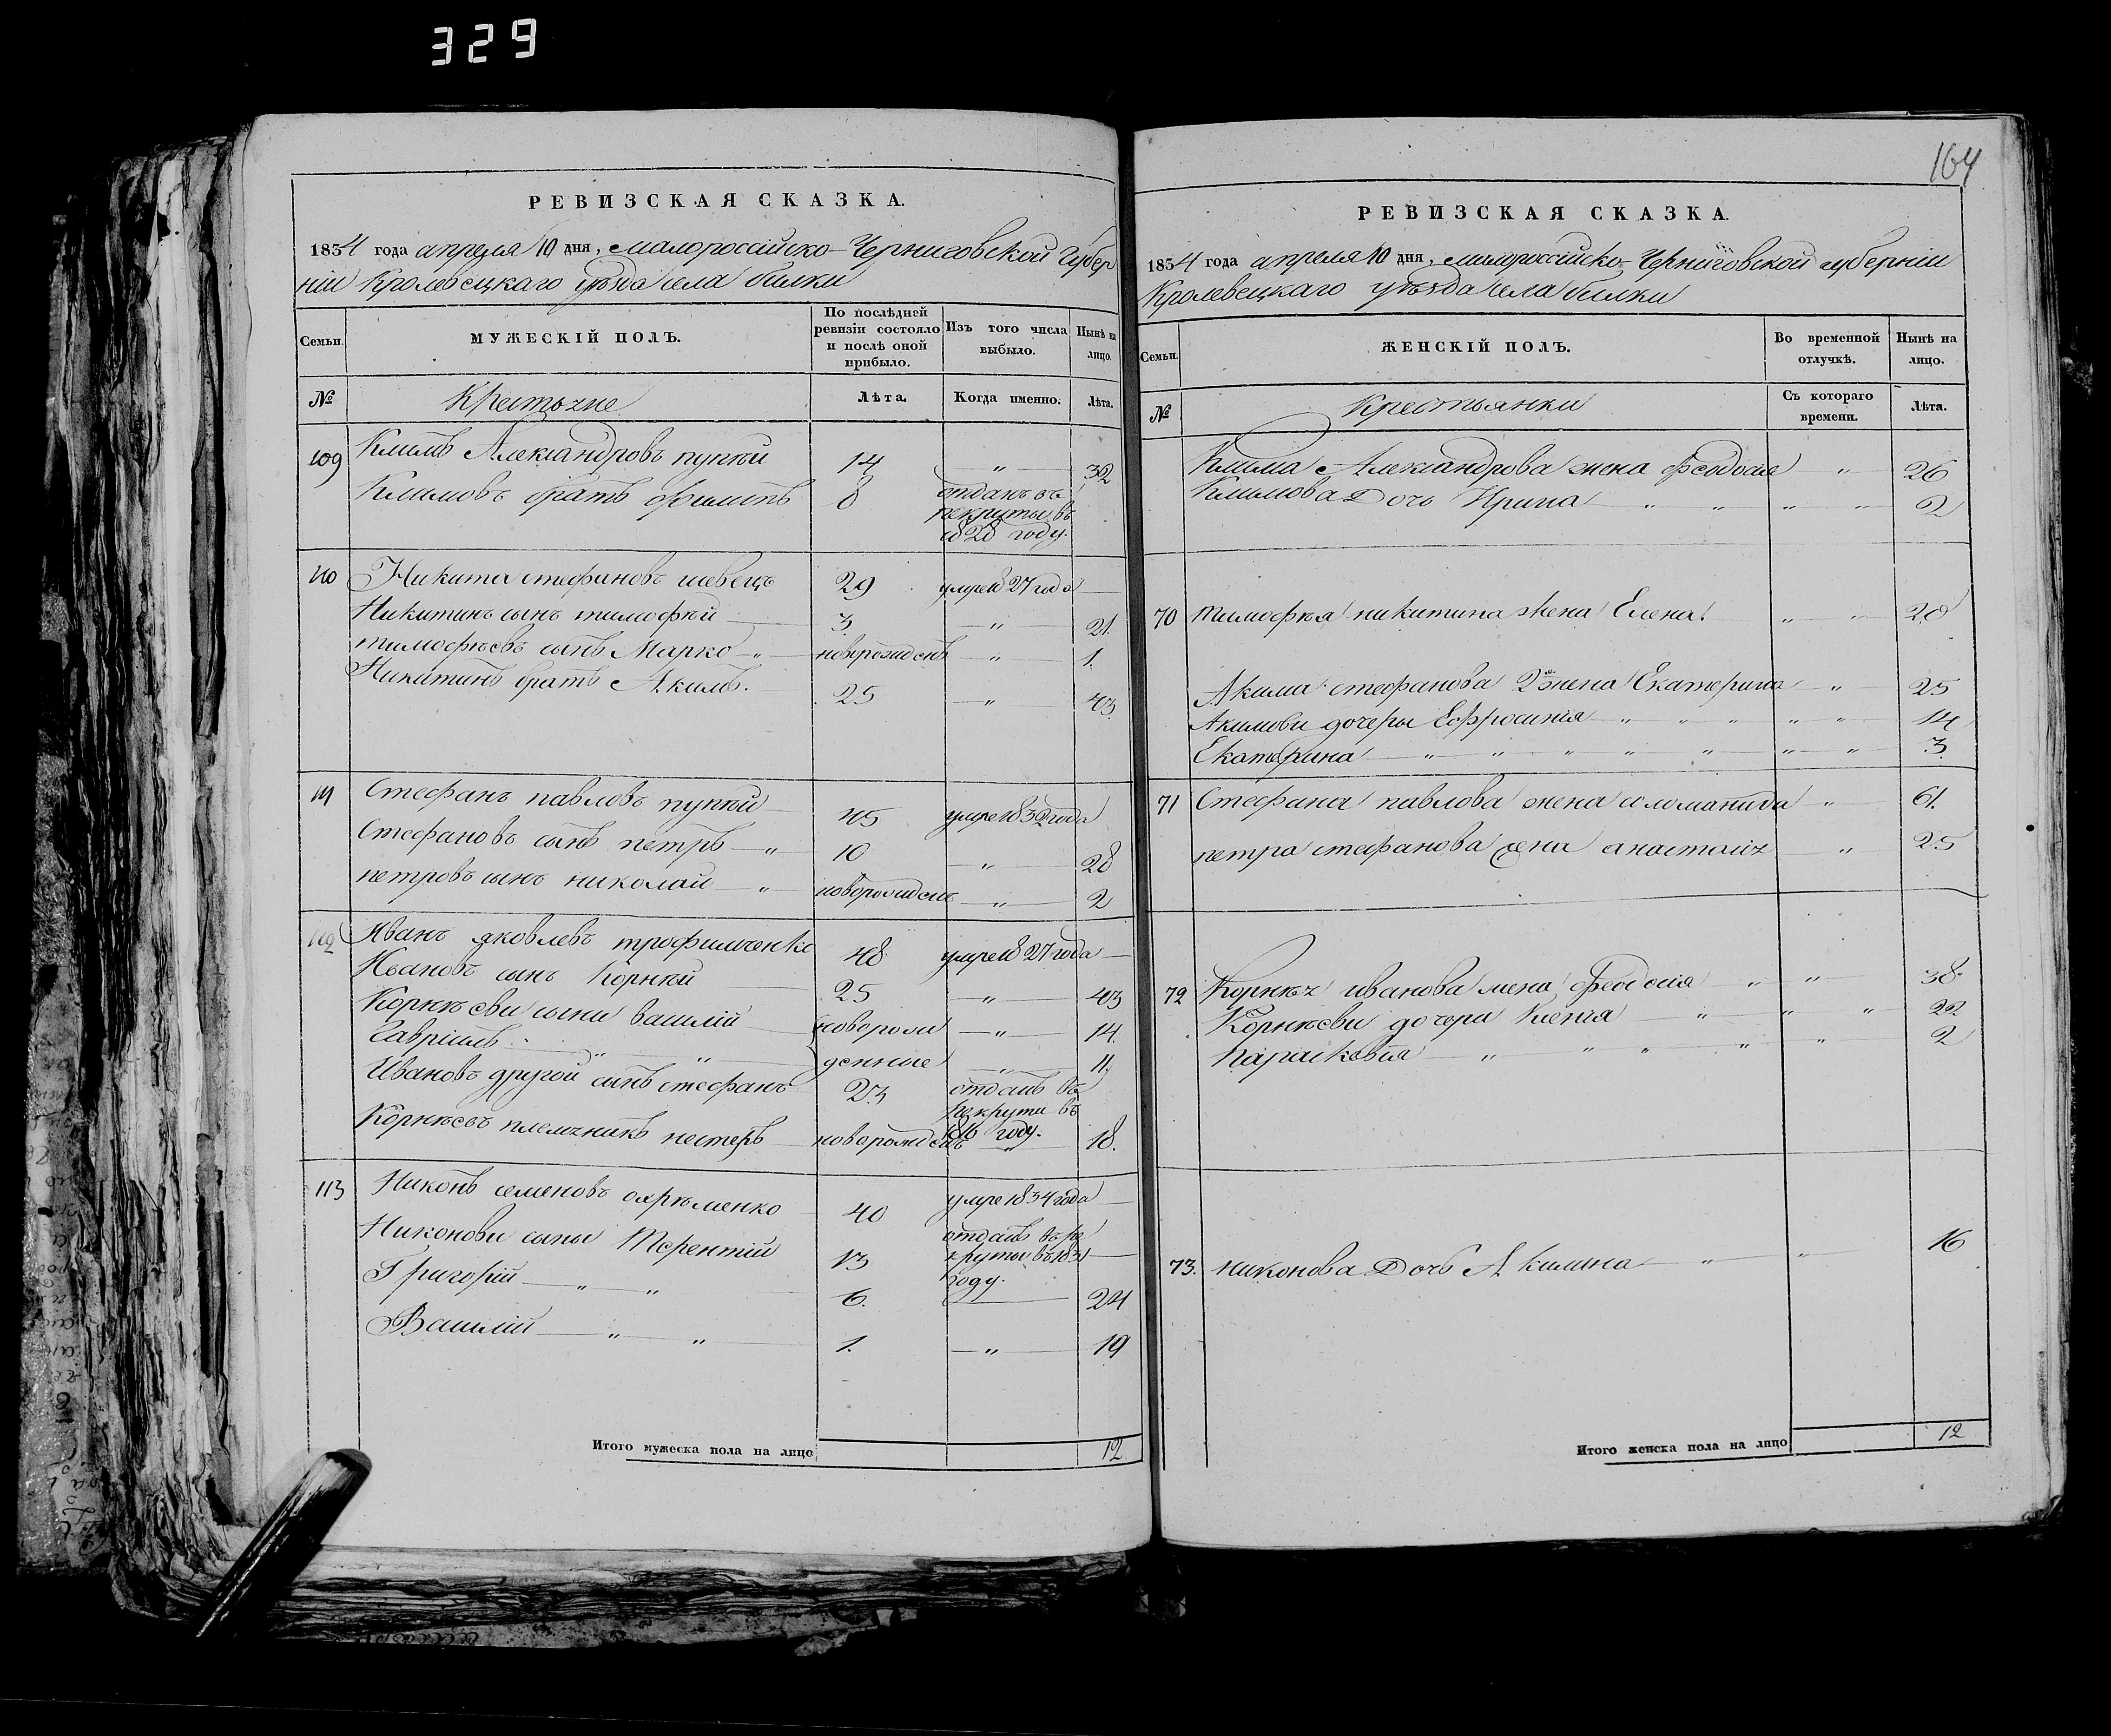 329
РЕВИЗСКАЯ СКАЗКА.
1834 года апреля 10 дня, малороссійско-Черниговской Губер
ніи Кролевецкаго уѣзда села билки
Семьи.
МУЖЕСКІЙ ПОЛЪ.
По послѣдней ревизіи состояло и послѣ оной прибыло.
Изъ того числа выбыло.
Нынѣ на лицо.
№
Крестьяне
Лѣта.
Когда именно.
Лѣта.
109 Климъ Александровъ 14 — „ — 32
Климовъ братъ Филипъ 8 отданъ въ
рекруты въ
1828 году.
110 Никита стефановъ швецъ 29 умре 1827 года —
Никитинъ сынъ тимофѣй 3. — „ — 21.
тимофѣевъ сынъ Марко — „ — новорожденъ — „ — 1.
Никитинъ братъ Акимъ. 25 — „ — 43.
111 Стефанъ павловъ 45 умре 1832 года
Стефановъ сынъ петръ — „ 10 — „ — 28
петровъ сынъ николай — „ новорожденъ — „ — 2
112 Иванъ яковлевъ трофимченко 48 умре 1827 года —
Ивановъ сынъ Корнѣй 25 — „ — 43
Корнѣеви сыни василій новорож — „ — 14.
Гавріилъ — „ — „ — денные — „ — 11.
Ивановъ другой сынъ стефанъ 23 отданъ въ
рекрути въ
1816 году.
Корнѣевъ племяникъ нестеръ новорожденъ — „ — 18.
113 Никонъ семеновъ охрѣменко 40 умре 1834 года —
Никонови сыны Терентій 13 отданъ въ ре
круты въ 1831 —
году.
Григорій — „ — „ 6. — 24
Василій — „ — „ 1. — „ — 19
Итого мужеска пола на лицо 12
164
РЕВИЗСКАЯ СКАЗКА.
1834 года апреля 10 дня, малороссійско-Черниговской губерніи
Кролевецкаго уѣзда села билки
Семьи.
ЖЕНСКІЙ ПОЛЪ.
Во временной отлучкѣ.
Нынѣ на лицо.
№
Крестьянки
Съ котораго времени.
Лѣта.
Клима Александрова жена феодосія „ 26
Климова Дочь Ирина — „ „ „ „ 2
70 тимофѣя никитина жена Елена. „ „ 28
Акима стефанова 2я жена Екатерина — „ — 25
Акимови дочеры Ефросинія — „ „ „ „ „ 14
Екатерина — „ „ „ „ „ „ „ 3.
71 Стефана павлова жена соломанида — „ 61.
петра стефанова жена анастасія — „ — 25
72 Корнѣя иванова жена Феодосія „ „ 38
Корнѣеви дочери „ „ „ 22
параскевія — „ „ „ „ „ 2
73. никонова Дочь Акилина — „ „ 16
Итого женска пола на лицо 12